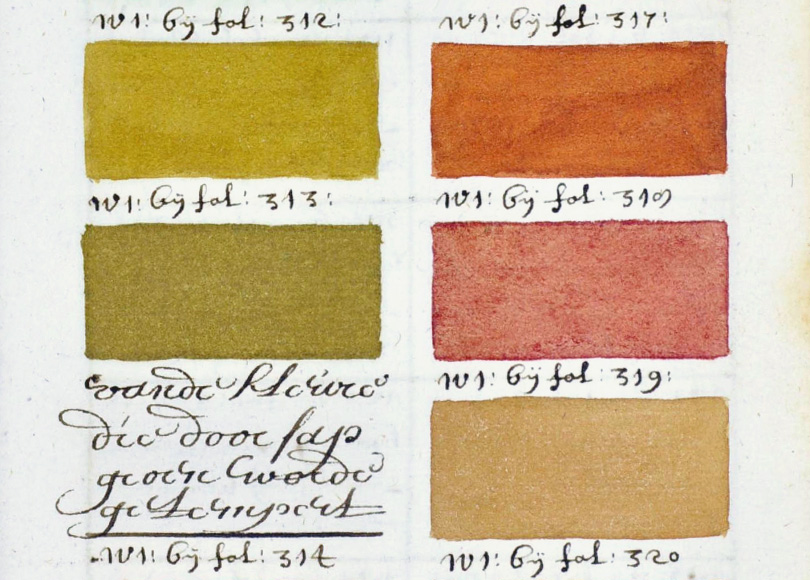 N1: bÿ fol: 312:
N1: bÿ fol: 313:
vande kleure
die door sap
groen worde
getempert
N1: bÿ fol: 314
N1: bÿ fol: 317:
N1: bÿ fol: 318
N1: bÿ fol: 319:
N1: bÿ fol: 320